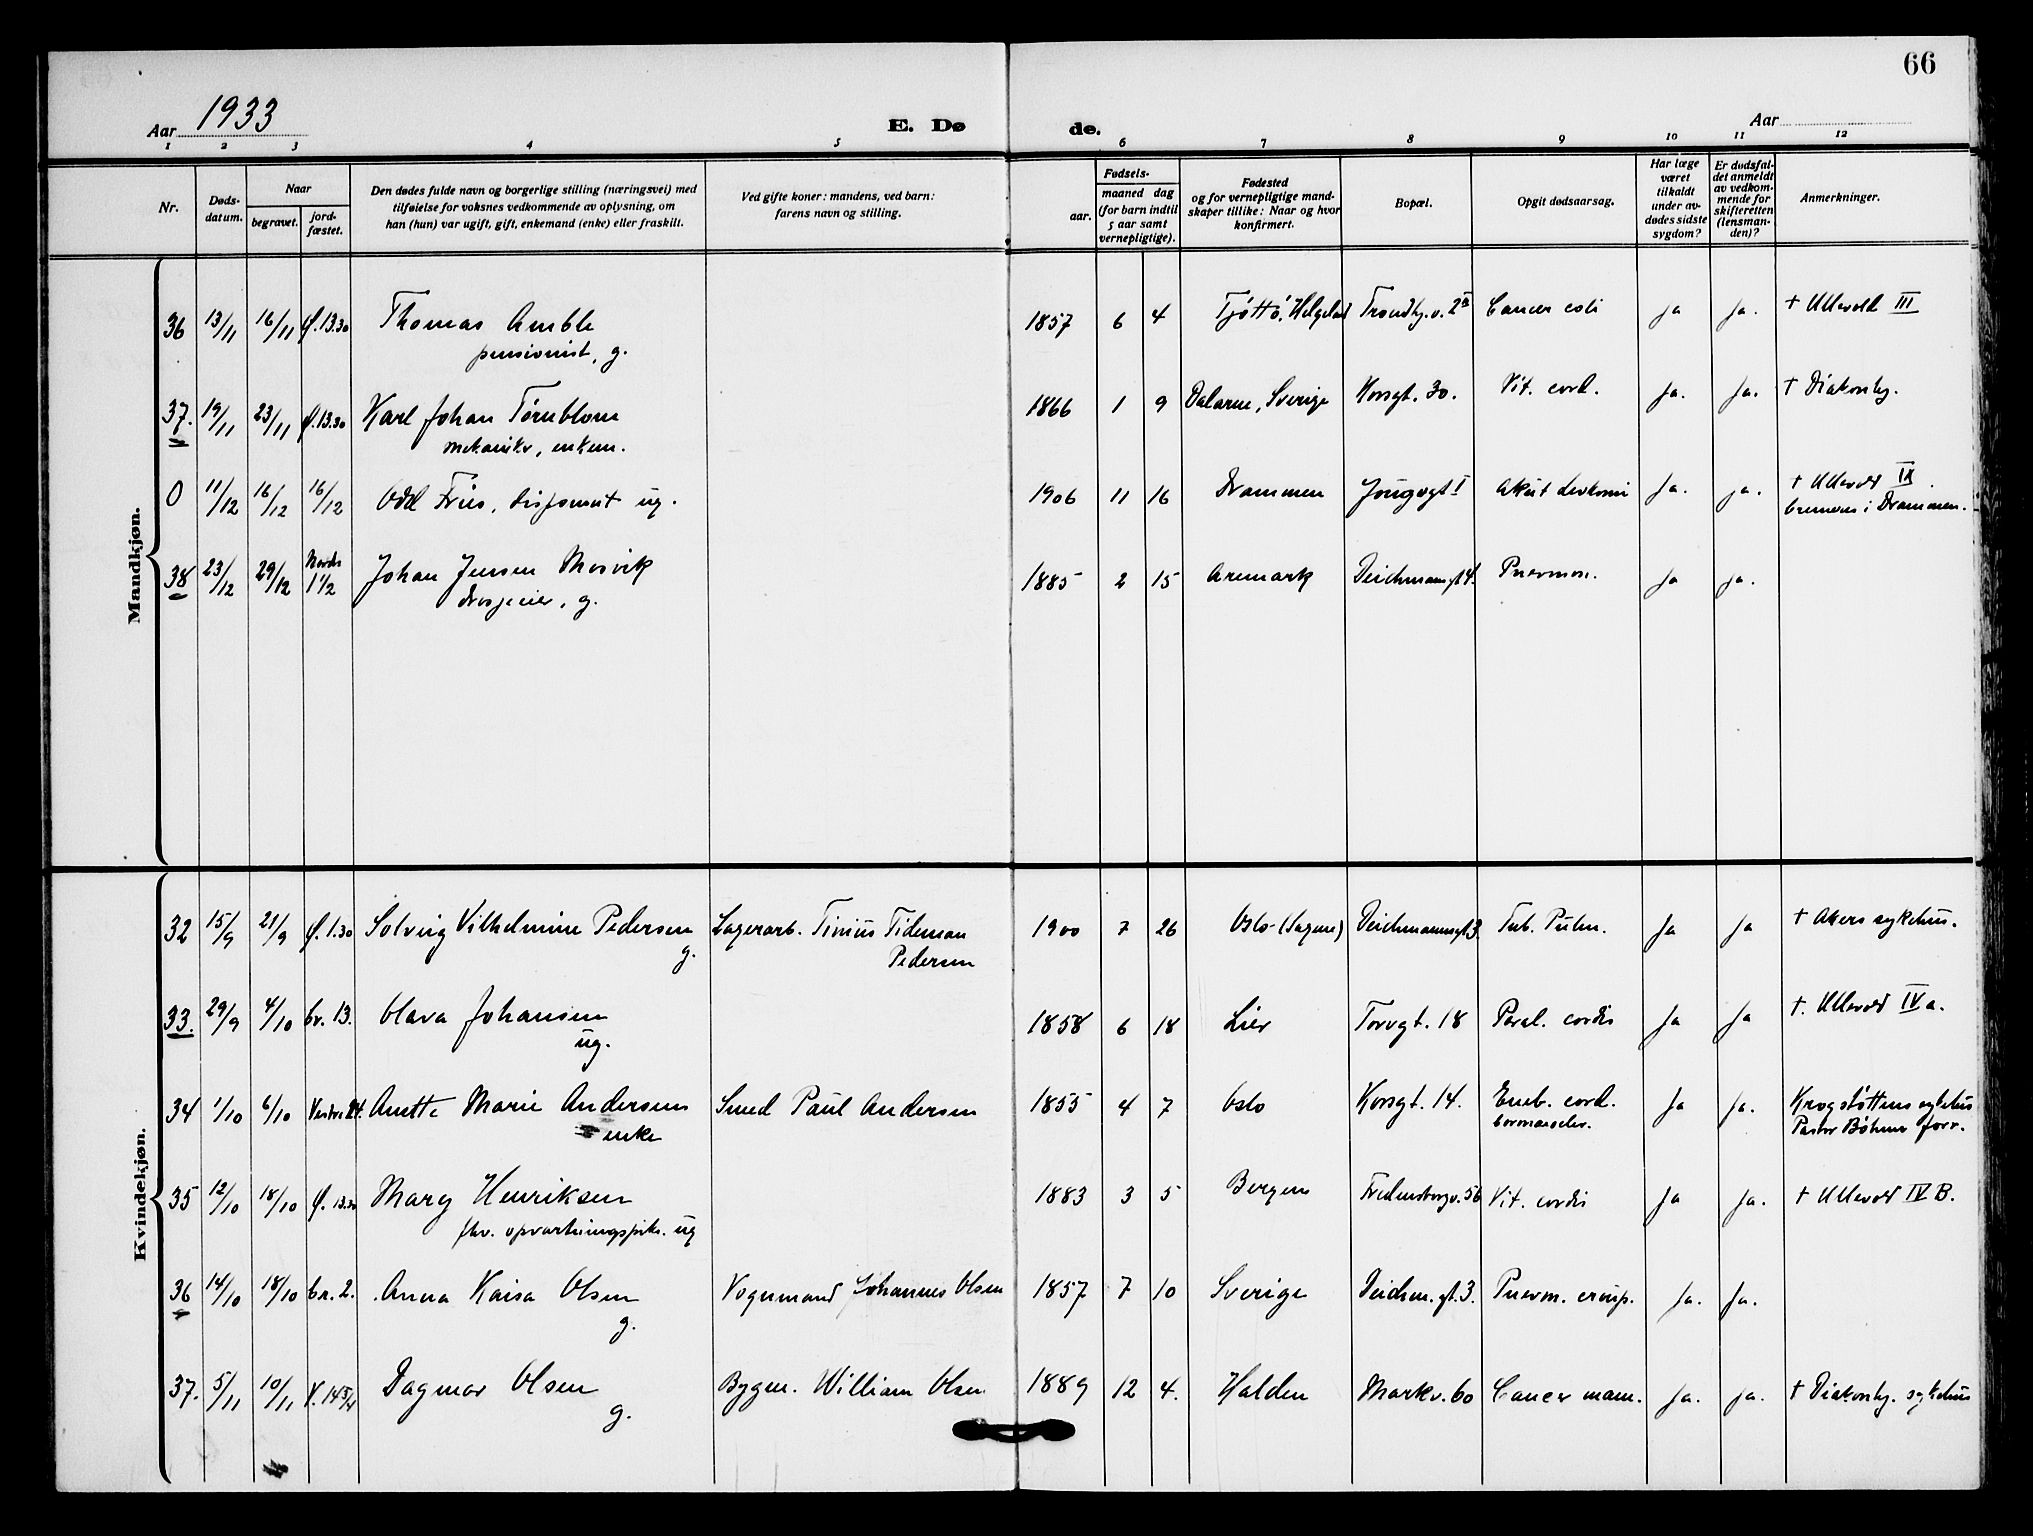 66
Aar 1933
E. Dø
de.
Aar
1 2 3 4 5 6 7 8 9 10 11 12
Nr.
Døds-
datum.
Naar
begravet.
jord-
fæstet.
Den dødes fulde navn og borgerlige stilling (næringsvei) med
tilføielse for voksnes vedkommende av oplysning, om
han (hun) var ugift, gift, enkemand (enke) eller fraskilt.
Ved gifte koner: mandens, ved barn:
farens navn og stilling.
Fødsels-
aar.
maaned dag
(for barn indtil
5 aar samt
vernepligtige).
Fødested
og for vernepligtige mand-
skaper tillike: Naar og hvor
konfirmert.
Bopæl.
Opgit dødsaarsag.
Har læge
været
tilkaldt
under av-
dødes sidste
sygdom?
Er dødsfal-
det anmeldt
av vedkom-
mende for
skifteretten
(lensman-
den)?
Anmerkninger.
Mandkjøn.
36 13/11 16/11 13.30 Thomas Amble 1857 6 4 Tjøttø, Helgeland Trondhj.v. 2 Cancer coli ja ja. + Ullevold III
pensionist, g.
37. 19/11 23/11 13.30 Karl Johan Törnblom 1866 1 9 Dalarne, Sverige Korsgt. 30. Vit. cord. ja. ja. + Diakonhj.
mekaniker, enkem.
0 11/12 16/12 16/12 Odd Friis, disponent ug. 1906 11 16 Drammen Akut ja. ja. + Ullevold IX
i Drammen.
38 23/12 29/12 Nordre 1 1/2 Johan Jensen Mosvik 1885 2 15 Aremark Deichmannsgt 4. Pnevmon. ja ja.
g.
Kvindekjøn.
32 15/9 21/9 1.30 Solveig Vilhelmine Pedersen Lagerarb. Tinius Tideman 1900 7 26 Oslo (Sagene) Deichmannsgt 3. Tub. Pulm. ja ja + Akers sykehus.
g. Pedersen
33. 29/9 4/10 Cr. 13. Olava Johansen 1858 6 18 Lier Torvgt. 18 Paral. cordis ja ja +. Ullevold IV a.
ug.
34 1/10 6/10 Vestre Anette Marie Andersen Smed Paul Andersen 1855 4 7 Oslo Korsgt. 14. Emb. cord. ja ja. Krogstøttens sykehus
enke Pastor Bøhmer forr.
35 12/10 18/10 13.30 Mary Henriksen 1883 3 5 Bergen Fredensborgv. 56 Vit. cordis ja ja. + Ullevold IV B.
fhv. opvartningspike. ug
36 14/10 18/10 Cr. 2. Anna Kaisa Olsen Vognmand Johannes Olsen 1857 7 10 Sverige Deichm. gt. 3. Pnevm. croup. ja. ja.
g.
37. 5/11 10/11 V. 14 3/4 Dagmar Olsen Bygm. William Olsen 1889 12 4. Halden Markv. 60 Cancer mam. ja. ja. + Diakonhj. sykehus
g.